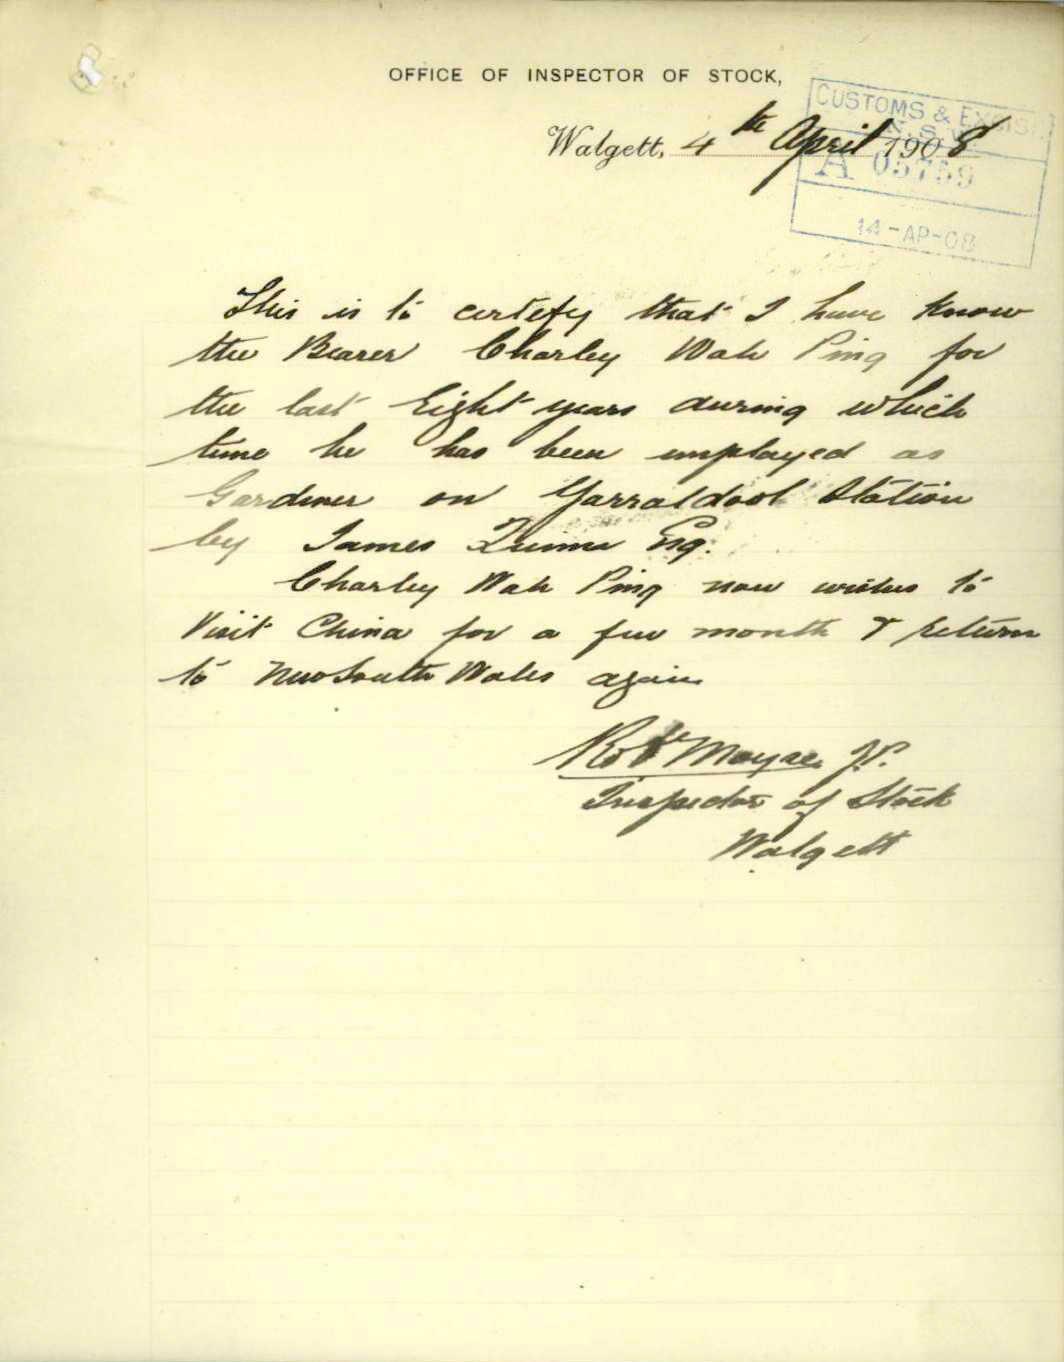 OFFICE OF INSPECTOR OF STOCK,
Walgett, 4th April 1908
CUSTOMS & EXCISE
N.S.W.
A 05759
14-AP-08
This is to certefy that I have know
the Bearer Charley Wah Ping for
the last Eight years during which
time he has been employed as
Gardiner on Yarraldool Station
by James Quinn Esq.
Charley Wah Ping now wishes to
Visit China for a few month & return
to New South Wales again
Robt J.P.
Inspector of Stock
Walgett